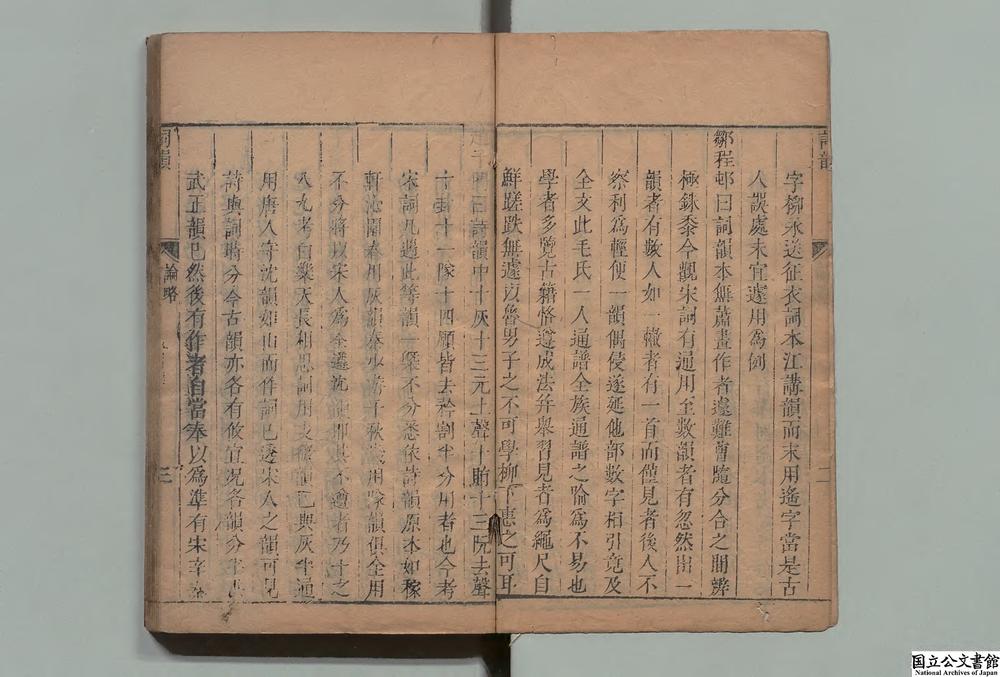 詞韻
二
字柳永送征衣詞本江講韻而末用遙字當是古
人誤處未宜遽用爲例
鄒程邨曰詞韻本無蕭畫作者遽難曹隨分合之間辨
極銖黍今觀宋詞有通用至數韻者有忽然出一
韻者有數人如一轍者有一首而僅見者後人不
察利爲輕便一韻偶侵遂延他部數字相引竟及
全文此毛氏一人通譜全族通譜之喻爲不易也
學者多覽古籍恪遵成法并舉習見者爲繩尺自
鮮蹉跌無遽以魯男子之不可學柳下惠之可耳
曰詩韻中十灰十三元上聲十賄十三阮去聲
十卦十一隊十四願皆去矜割半分用者也今考
宋詞凡遇此等韻一槩不分悉依詩韻原本如稼
軒沁園春用灰韻秦少游千秋歲用隊韻俱全用
不分將以宋人爲全遵沈韻則其不遵者乃十之
八九考白樂天長相思詞用支微韻已與灰半通
用唐人守沈韻如山而作詞已逐宋人之韻可見
詩與詞將分今古韻亦各有攸宜况各韻分半
武正韻已然後有作者自當奉以爲準有宋辛
詞韻
論略
三
国立公文書館
National Archives of Japan